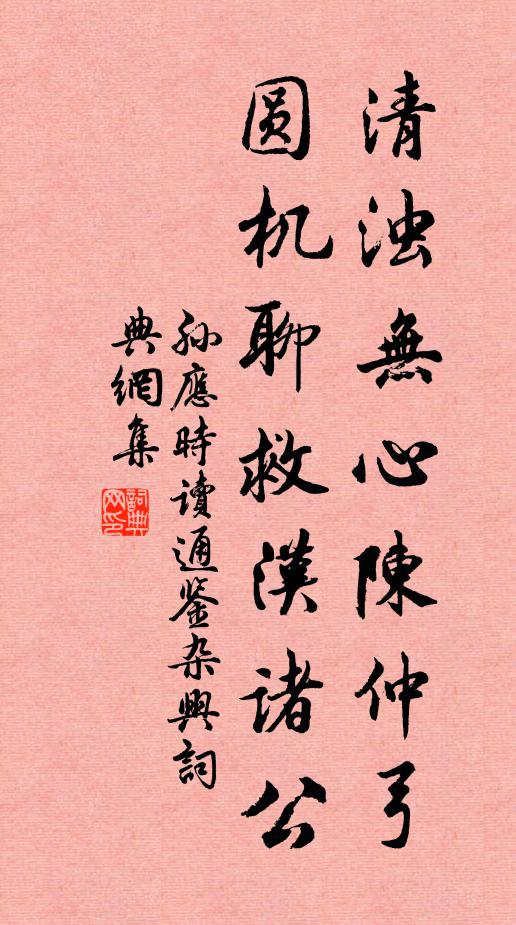 清浊無心陳仲弓
圆机聊救漢诸公
孙應時讀通鉴杂興詞
典網集
詞典網印